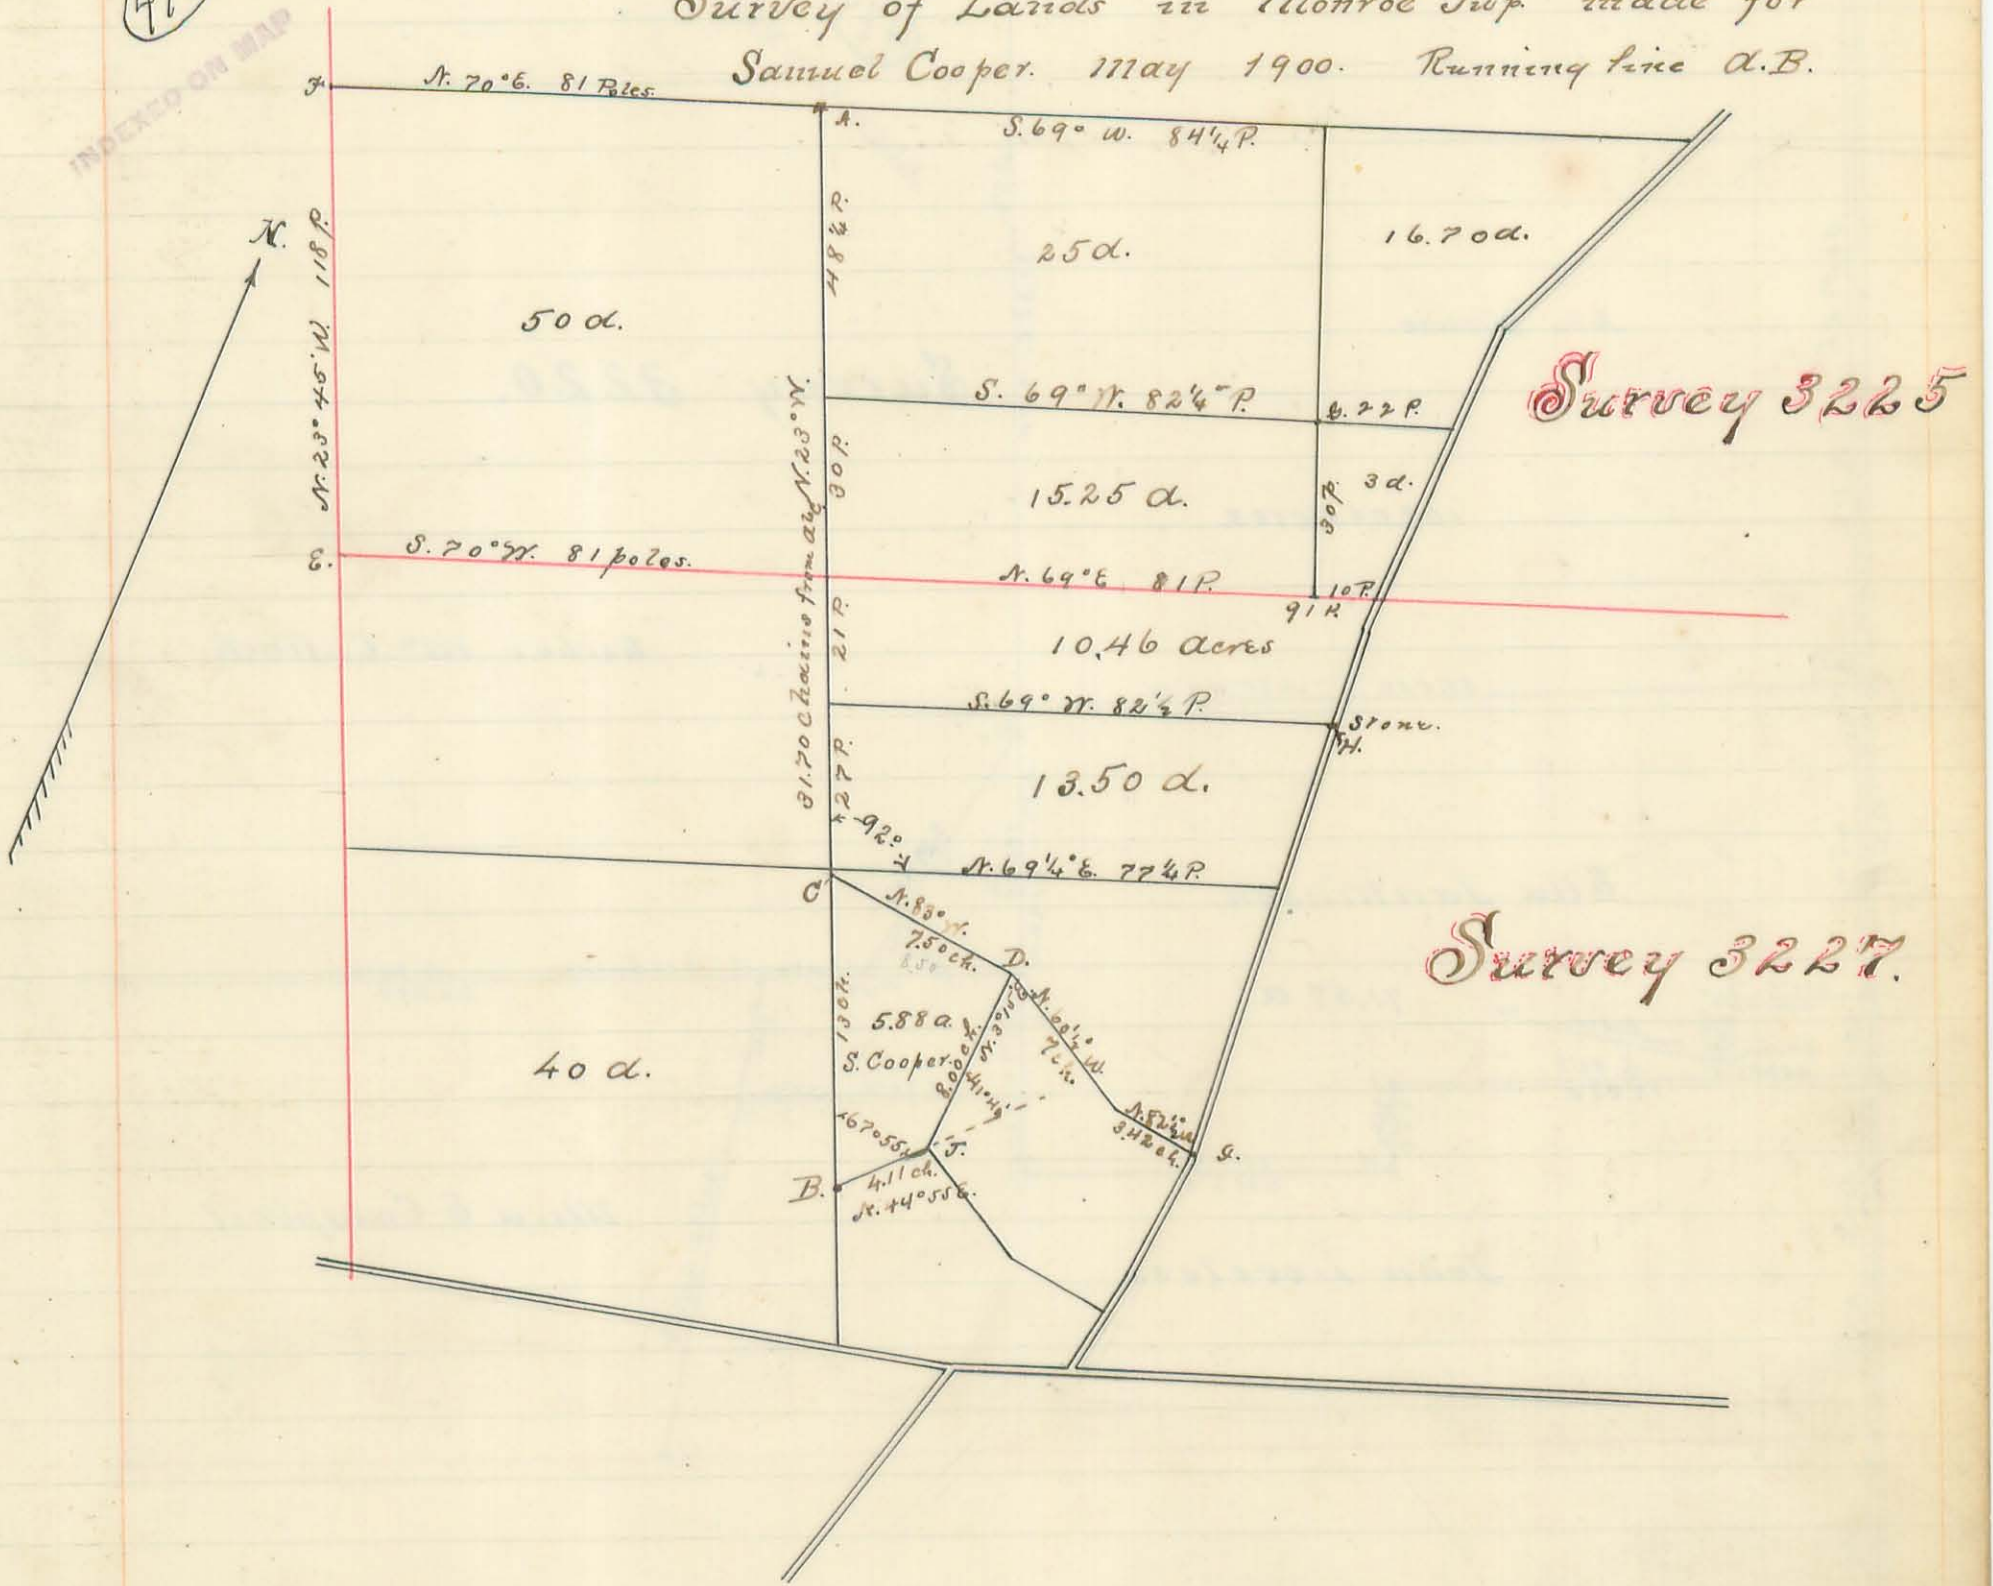 47
INDEXED ON MAP
Survey of Lands in Monroe Twp. made for
Samuel Cooper. May 1900. Running line A.B.
F
N. 70° E. 81 Poles.
A.
S. 69° W. 84 1/4 P.
N.
N. 23° 45' W. 118 P.
48 1/4 P.
25 A.
16.70 A.
50 A.
Survey 3225
S. 69° W. 82 1/4 P.
G. 22 P.
31.70 chains from A to C N. 23° W.
30 P.
15.25 A.
30 P.
3 A.
E.
S. 70° W. 81 poles.
N. 69° E 81 P.
10 P.
91 P.
21 P.
10.46 Acres
S. 69° W. 82 1/2 P.
Stone.
H.
27 P.
13.50 A.
92°
N. 69 1/4° E. 77 1/4 P.
C
N. 83° W.
7.50 ch.
8.50
D.
Survey 3227.
13 ch.
5.88 a.
S. Cooper.
8.00 ch.
N. 3° 15' E.
N. 60 1/2° W.
7 ch.
40 A.
41° 40'
67° 55'
J.
N. 82 1/2 W
3.42 ch.
G.
B.
4.11 ch.
N. 44° 55 E.